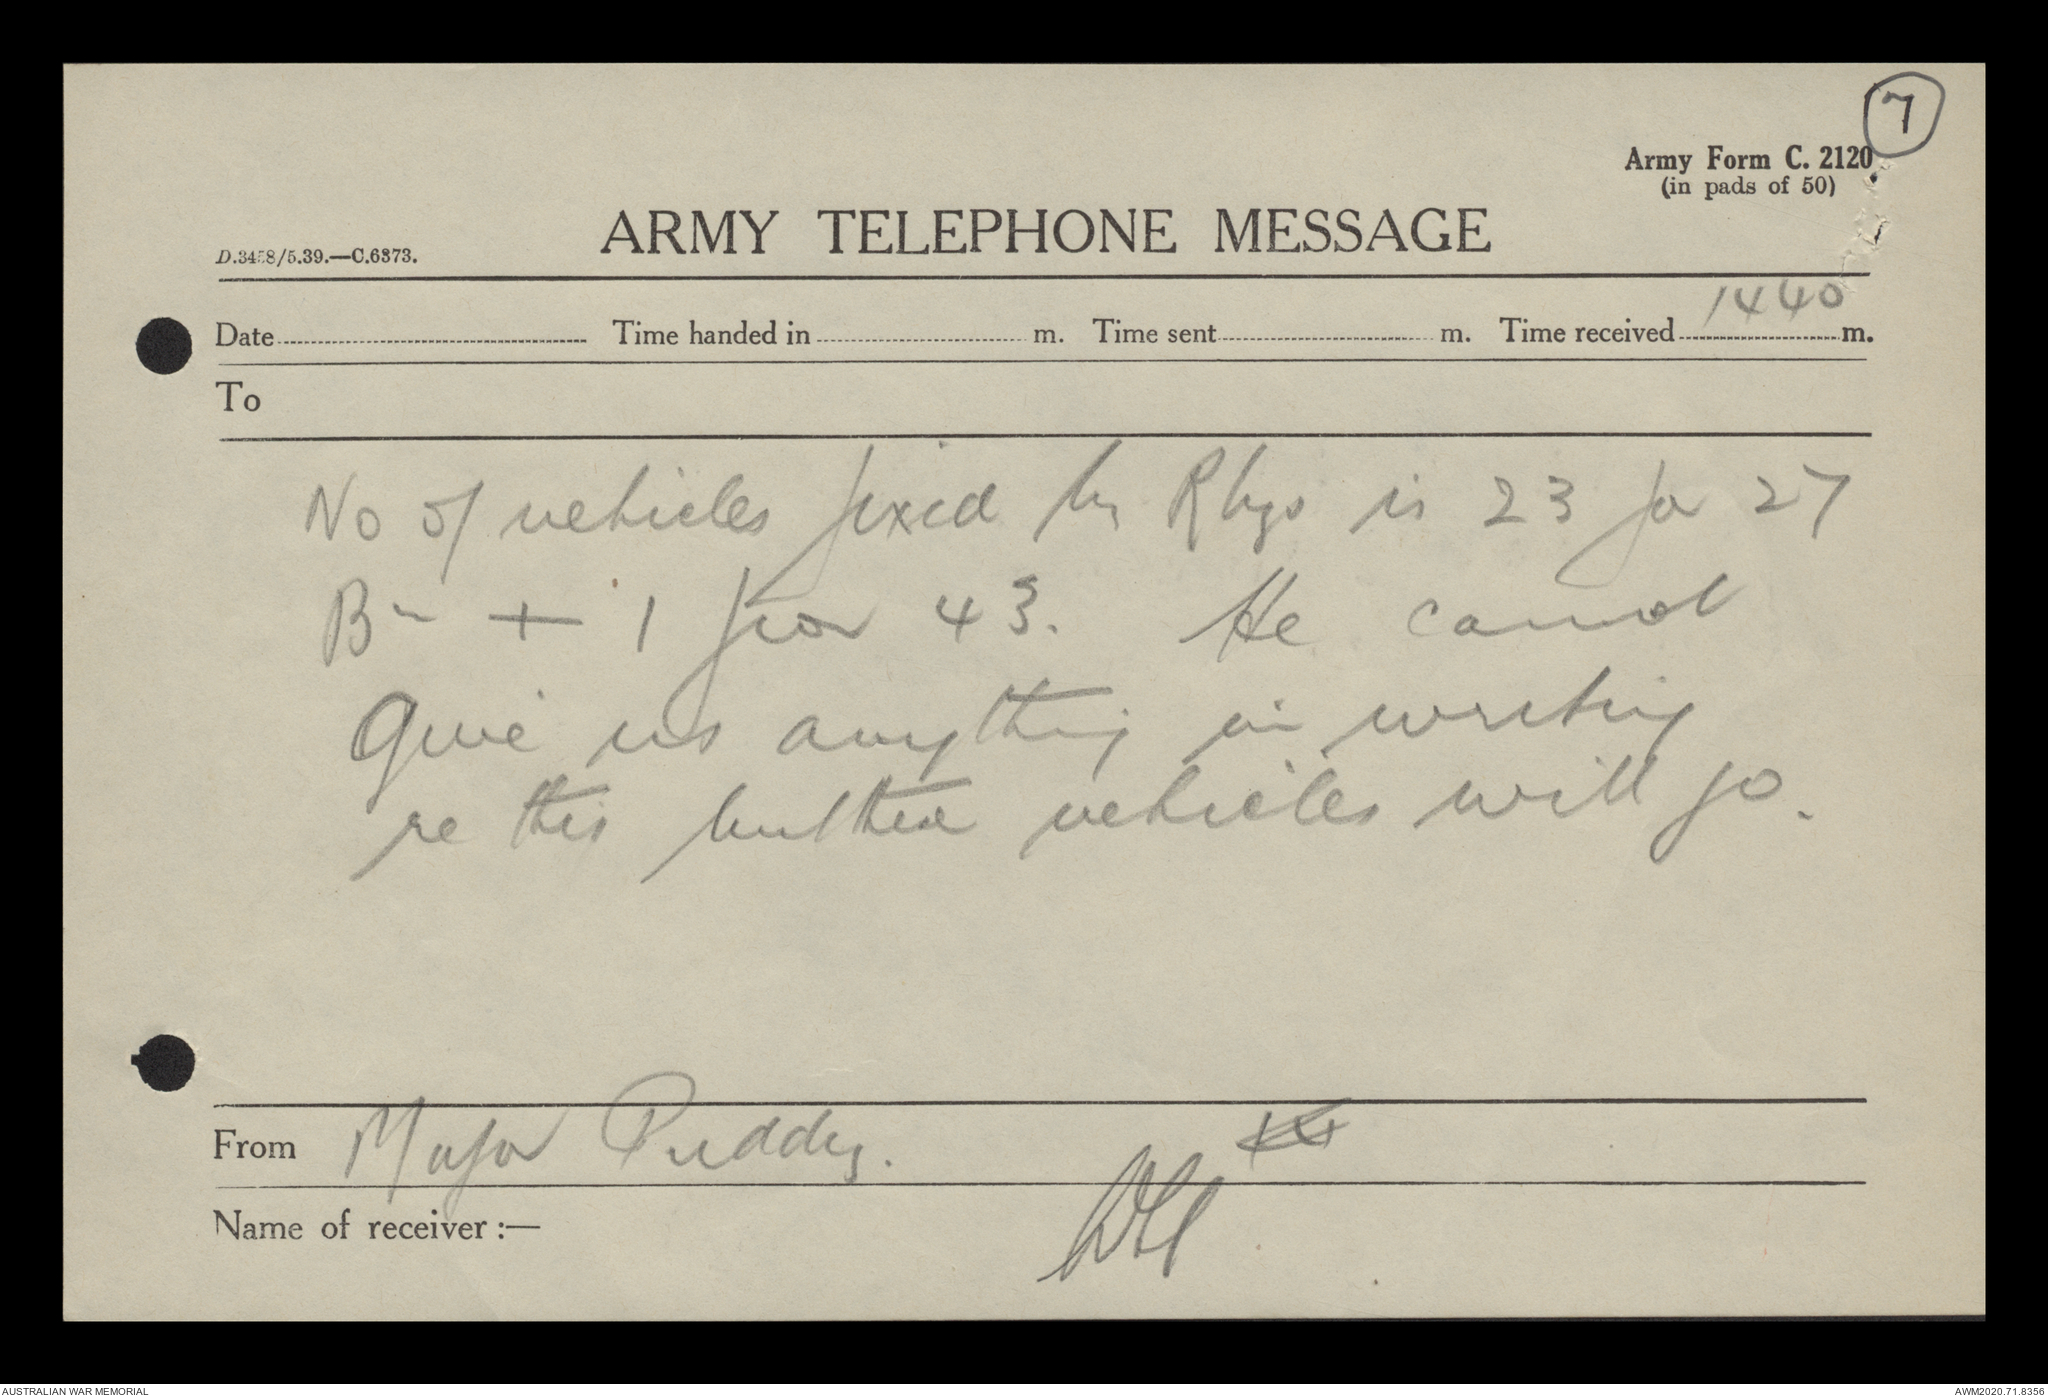 7
Army Form C. 2120
(in pads of 50)
ARMY TELEPHONE MESSAGE
D.3458/5.39.—C.6873.
Date Time handed in m. Time sent m. Time received 1440 m.
To
No of vehicles fixed by Rhys is 23 for 27
Bn + 1 for 43. He cannot
Give us anything in writing
re this but the vehicles will go.
From Major Puddy.
Name of receiver :—
AUSTRALIAN WAR MEMORIAL
AWM2020.71.8356